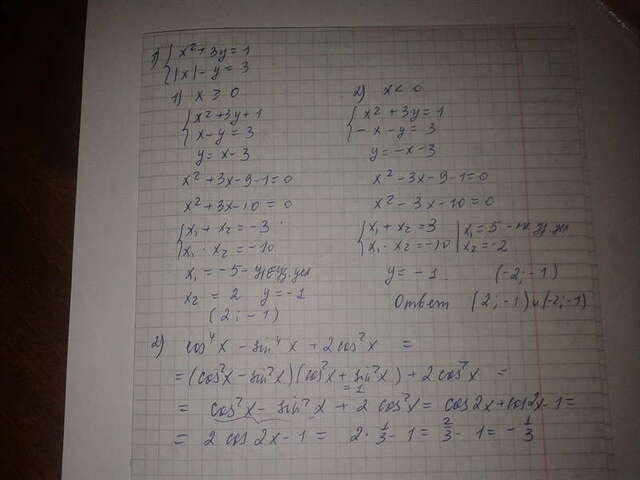 1) { x² + 3y = 1
|x| - y = 3
1) x ≥ 0
{ x² + 3y + 1
x - y = 3
y = x - 3
x² + 3x - 9 - 1 = 0
x² + 3x - 10 = 0
{ x₁ + x₂ = -3
x₁ · x₂ = -10
x₁ = -5 -
x₂ = 2 y = -1
(2; -1)
2) x < 0
{ x² + 3y = 1
- x - y = 3
y = -x - 3
x² - 3x - 9 - 1 = 0
x² - 3x - 10 = 0
{ x₁ + x₂ = 3 | x₁ = 5 -
x₁ · x₂ = -10 | x₂ = -2
y = -1 (-2; -1)
Ответ (2; -1) и (-2; -1)
2) cos⁴x - sin⁴x + 2cos²x =
= (cos²x - sin²x)(cos²x + sin²x) + 2cos²x =
= 1
= cos²x - sin²x + 2 cos²x = cos2x + cos2x - 1 =
= 2 cos 2x - 1 = 2 · 1/3 - 1 = 2/3 - 1 = - 1/3